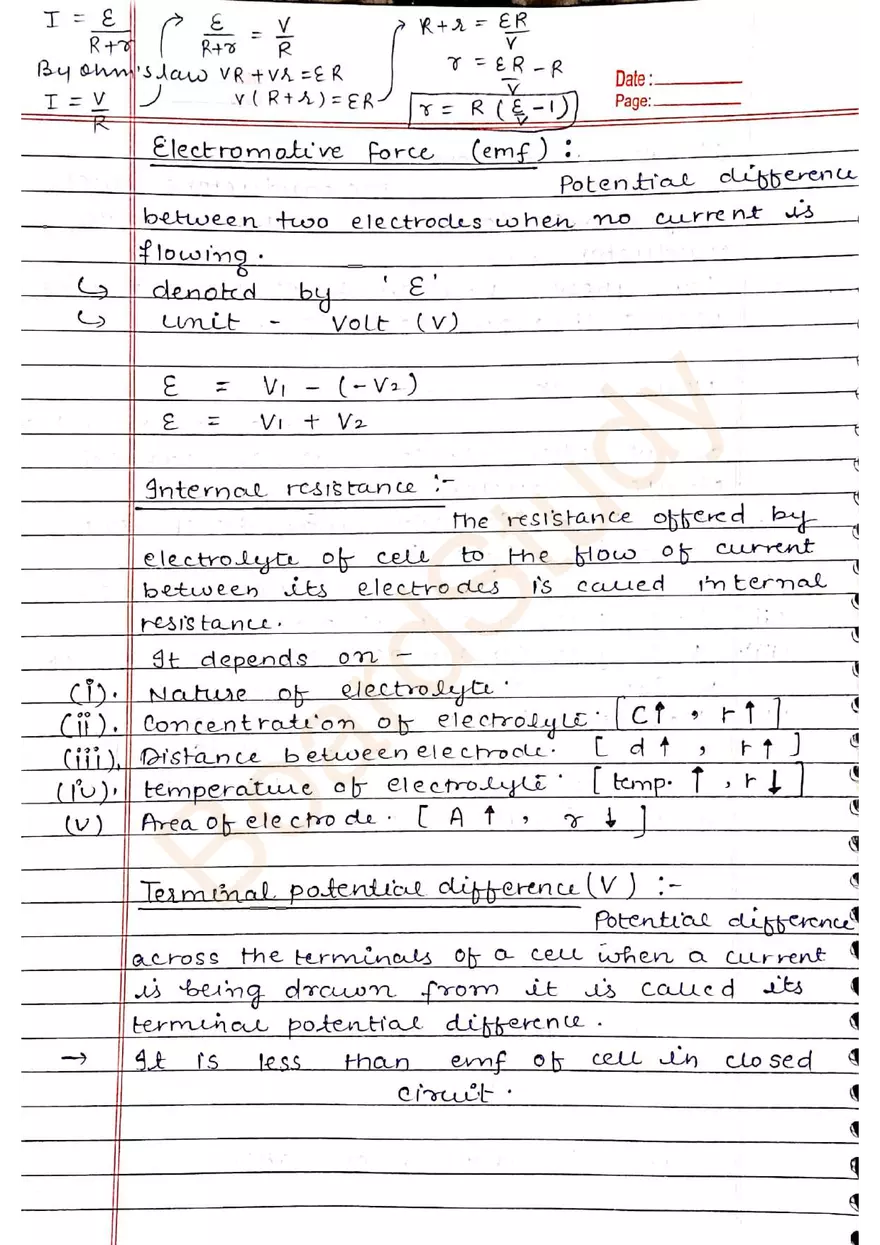 I = ε/(R+r)
By ohm's law
I = V/R
ε/(R+r) = V/R
VR + Vr = εR
V(R+r) = εR
R+r = εR/V
r = εR/V - R
r = R(ε/V - 1)
Date:
Page:
Electromotive force (emf):
Potential difference
between two electrodes when no current is
flowing.
↳ denoted by 'ε'
↳ unit - Volt (V)
ε = V1 - (-V2)
ε = V1 + V2
Internal resistance :-
the resistance offered by
electrolyte of cell to the flow of current
between its electrodes is called internal
resistance.
It depends on -
(i). Nature of electrolyte.
(ii). Concentration of electrolyte. [C↑, r↑]
(iii). Distance between electrode. [d↑, r↑]
(iv). temperature of electrolyte. [temp.↑, r↓]
(v) Area of electrode. [A↑, r↓]
Terminal potential difference (V) :-
Potential difference
across the terminals of a cell when a current
is being drawn from it is called its
terminal potential difference.
→ It is less than emf of cell in closed
circuit.
BoardStudy